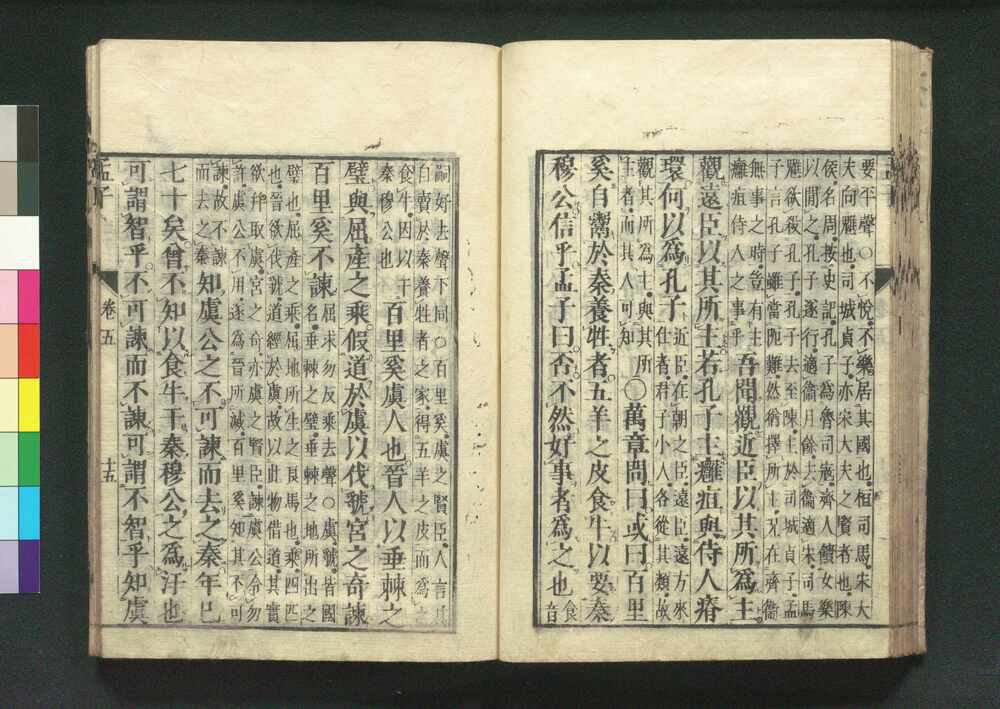 要平聲○不悅不樂居其國也桓司馬宋大
夫向魋也司城貞子亦宋大夫之賢者也陳
侯名周按史記孔子為魯司寇齊人饋女樂
以間之孔子遂行適衞月餘去衞適宋司馬
魋欲殺孔子孔子去至陳主於司城貞子孟
子言孔子雖當阨難然猶擇所主況在齊衞
無事之時豈有主
癰疽侍人之事乎
吾聞觀近臣以其所爲主
觀遠臣以其所主若孔子主癰疽與侍人瘠
環何以爲孔子
近臣在朝之臣遠臣遠方來
仕者君子小人各從其類故
觀其所爲主與其所
主者而其人可知
○萬章問曰或曰百里
奚自鬻於秦養牲者五羊之皮食牛以要秦
穆公信乎孟子曰否不然好事者爲之也
食
音
嗣好去聲下同○百里奚虞之賢臣人言其
自賣於秦養牲者之家得五羊之皮而爲之
食牛因以干
秦穆公也
百里奚虞人也晉人以垂棘之
璧與屈產之乘假道於虞以伐虢宮之奇諫
百里奚不諫
屈求勿反乘去聲○虞虢皆國
名垂棘之璧垂棘之地所出之
璧也屈產之乘屈地所生之良馬也乘四匹
也晉欲伐虢道經於虞故以此物借道其實
欲并取虞宮之奇亦虞之賢臣諫虞公令勿
許虞公不用遂爲晉所滅百里奚知其不可
諫故不諫
而去之秦
知虞公之不可諫而去之秦年已
七十矣曾不知以食牛干秦穆公之爲汙也
可謂智乎不可諫而不諫可謂不智乎知虞
孟子
卷五
十五